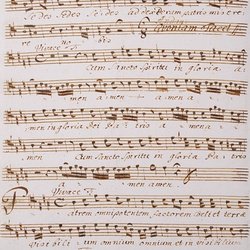 Sedes Sedes Sedes ad dexteram patris misere
Quoniam tacet
Vivace
Cum Sancto Spiritu in gloria
a men amen a mena
men in gloria Dei Patris a mena
men Cum Sancto Spiritu in gloria Patris
a men amen
Vivace
Patrem omnipotentem factorem coeli et terre
visibili um omnium omnium et in visibilium